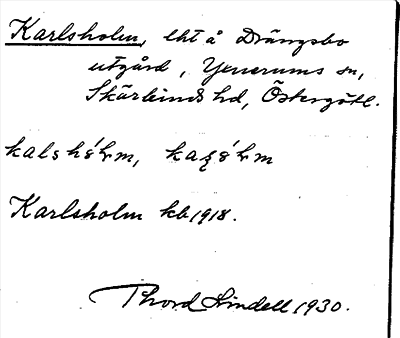 Karlsholm, lht å Drängsbo
utgård, Yxnerums sn,
Skärkinds hd, Östergötl.
Karlsholm kb 1918.
Thord Lindell 1930.